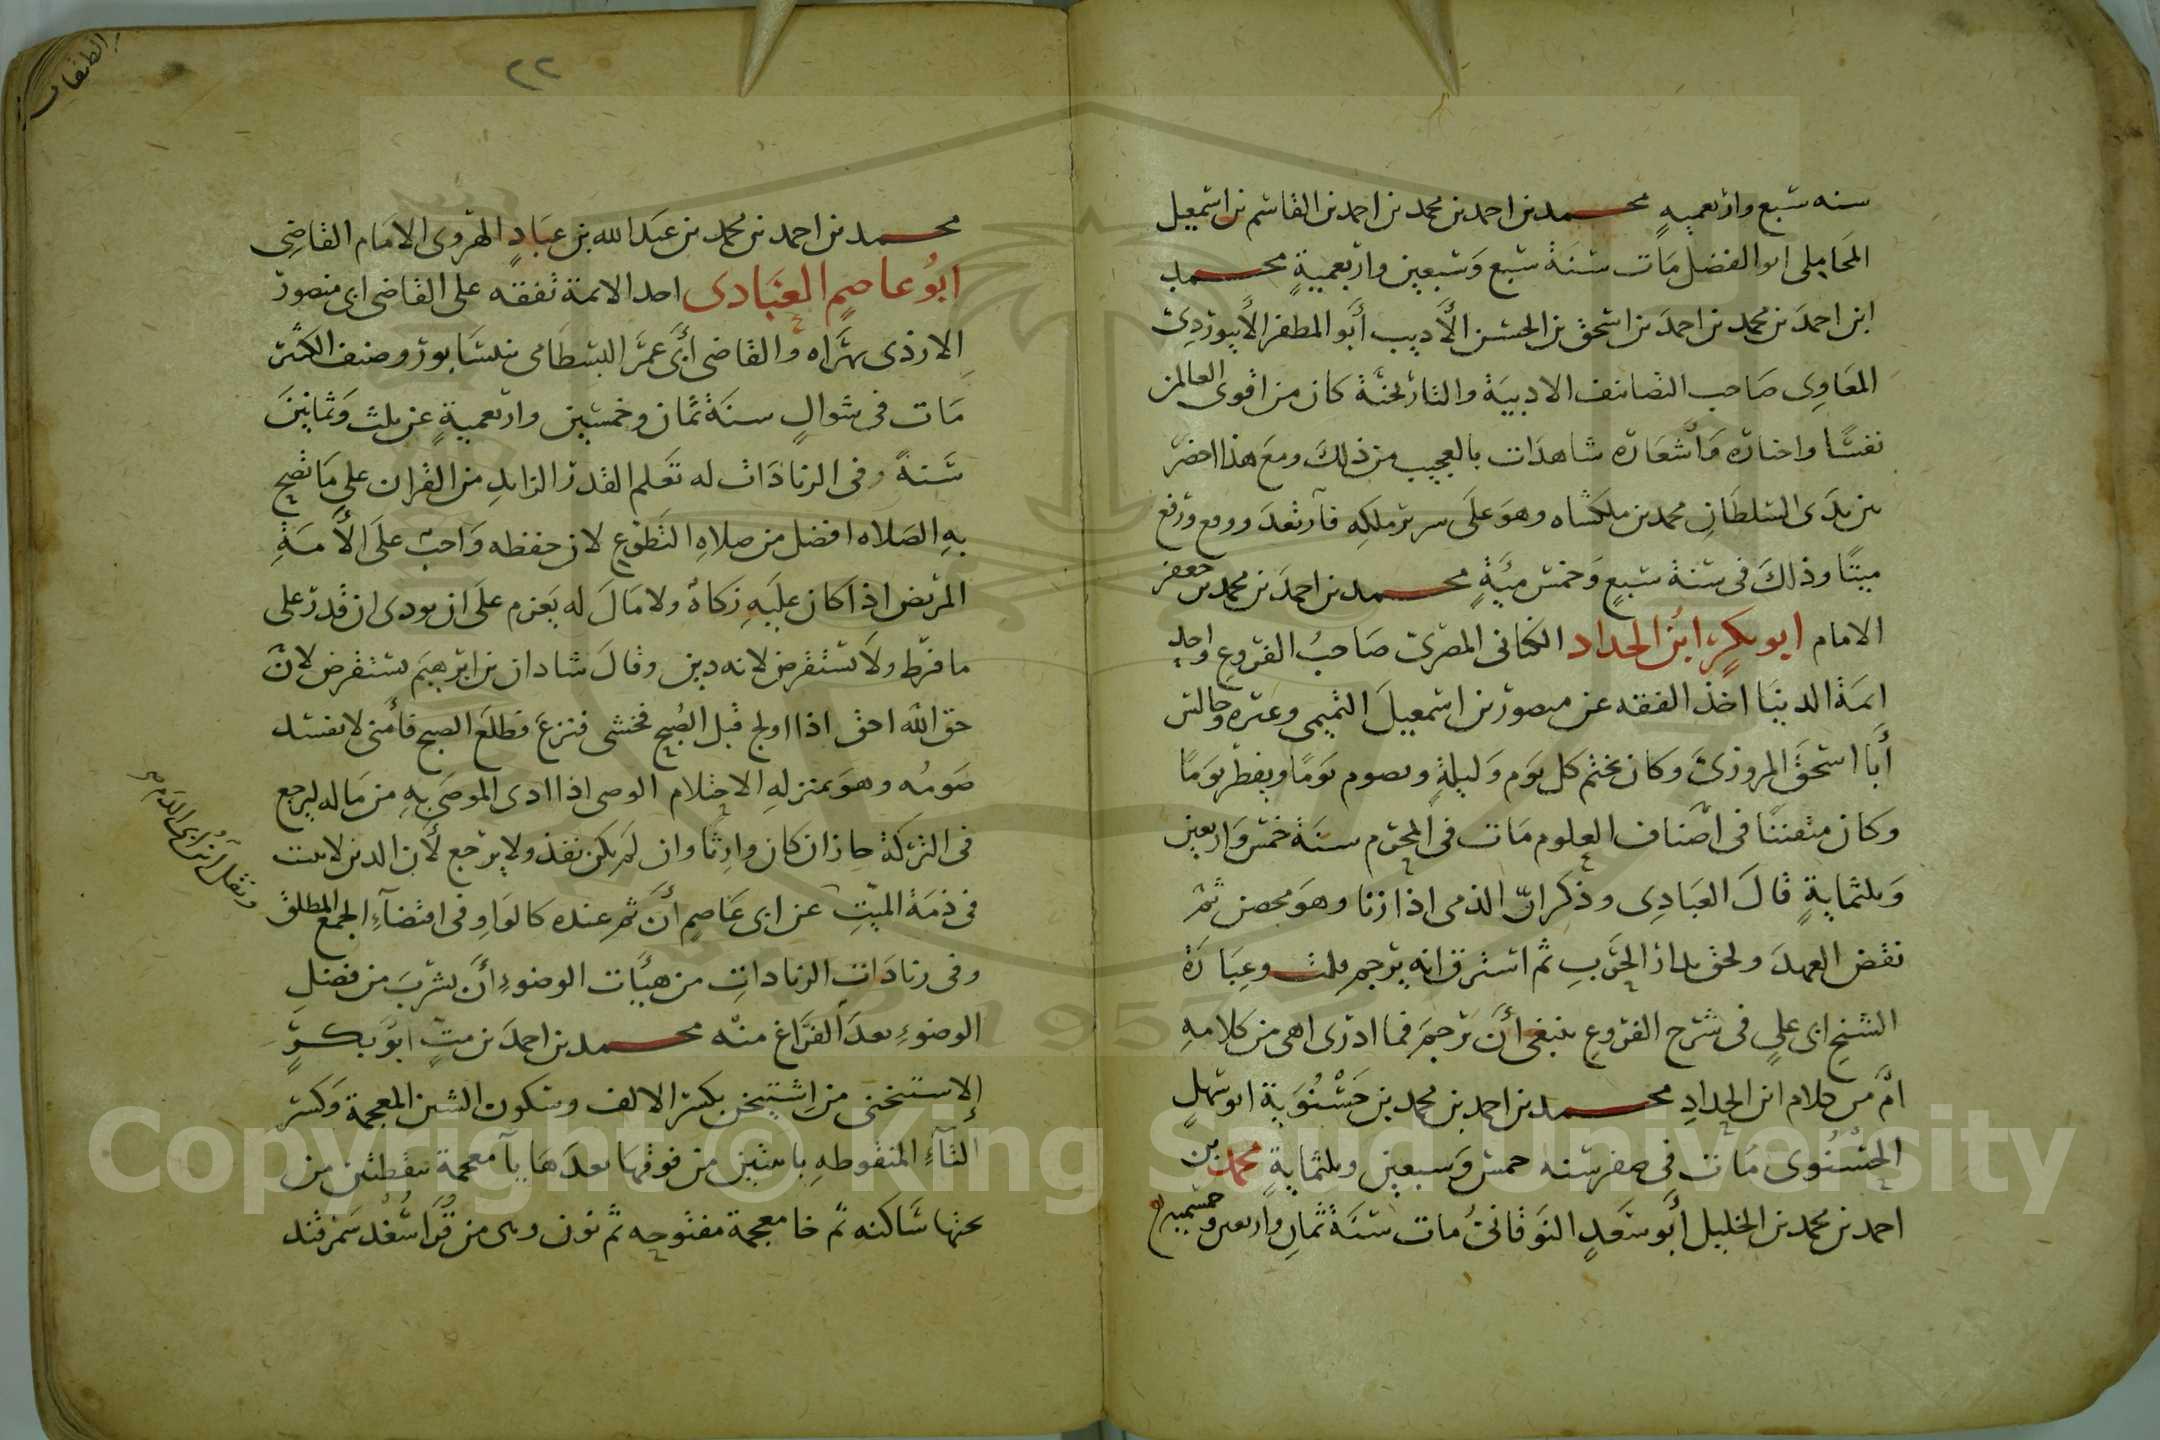 سنه سبع واربعميه محمد بن احمد بن محمد بن احمد بن القاسم بن اسمعيل
المحاملى ابو الفضل مات سنة سبع وسبعين واربعمية محمد
ابن احمد بن محمد بن احمد بن اسحق بن الحسن الأديب أبو المظفر الأبيوردى
المعاوى صاحب التصانيف الادبية والتاريخية كان من اقوى العالمين
نفسا واخباره واشعاره شاهدات بالعجيب من ذلك ومع هذا احضر
بين يدى السلطان محمد بن ملكشاه وهو على سرير ملكه فارتعد ووقع ورفع
ميتا وذلك فى سنة سبع وخمس مية محمد بن احمد بن محمد بن جعفر
الامام ابو بكر ابن الحداد الكنانى المصرى صاحب الفروع واحد
ايمة الدينا اخذ الفقه عن منصور بن اسمعيل التميمى وغيره وجالس
أبا اسحق المروزى وكان يختم كل يوم وليلة ويصوم يوما ويفطر يوما
وكان متفننا فى اصناف العلوم مات فى المحرم سنة خمس واربعين
وثلثماية قال العبادى وذكر ان الذمى اذا زنا وهو محصن ثم
نقض العهد ولحق بدار الحرب ثم استرق انه يرجم قلت وعبارة
الشيخ ابى على فى شرح الفروع ينبغى أن يرجم فما ادرى اهى من كلامه
ام من كلام ابن الحداد محمد بن احمد بن محمد بن حسنوية ابو سهل
الحسنوى مات فى صفر سنه خمس وسبعين وثلثماية محمد بن
احمد بن محمد بن الخليل أبو سعد النوقانى مات سنة ثمان واربعين وخمسميه
٢٢
محمد بن احمد بن محمد بن عبد الله بن عباد الهروى الامام القاضى
ابو عاصم العبادى احد الائمة تفقه على القاضى ابى منصور
الازدى بهراه والقاضى أبى عمر البسطامى بنيسابور وصنف الكثير
مات فى شوال سنة ثمان وخمسين واربعمية عن ثلث وثمانين
سنة وفى الزيادات له تعلم القدر الزايد من القران على ما تصح
به الصلاه افضل من صلاه التطوع لان حفظه واجب على الأمة
المريض اذا كان عليه زكاة ولا مال له يعزم على ان يودى ان قدر على
ما فرط ولا يستقرض لانه دين وقال شاذان بن ابرهيم يستقرض لان
حق الله احق اذا اولج قبل الصبح فخشى فنزع فطلع الصبح فأمنى لا يفسد
صومه وهو بمنزله الاحتلام الوصى اذا ادى الموصى به من ماله ليرجع
فى التركة جاز ان كان وارثا وان لم يكن نفذ ولا يرجع لأن الدين لا يثبت
فى ذمة الميت عن ابى عاصم أن ثم عنده كالواو فى اقتضاء الجمع المطلق
وفى زيادات الزيادات من هيات الوضوء أن يشرب من فضل
الوضوء بعد الفراغ منه محمد بن احمد بن مت ابو بكر
الاستيخنى من اشتيخن بكسر الالف وسكون الشين المعجمة وكسر
التاء المنقوطه باثنتين من فوقها بعدها ياء معجمة بنقطتين من
تحتها ساكنه ثم خا معجمة مفتوحه ثم نون وهى من قرا سغد سمرقند